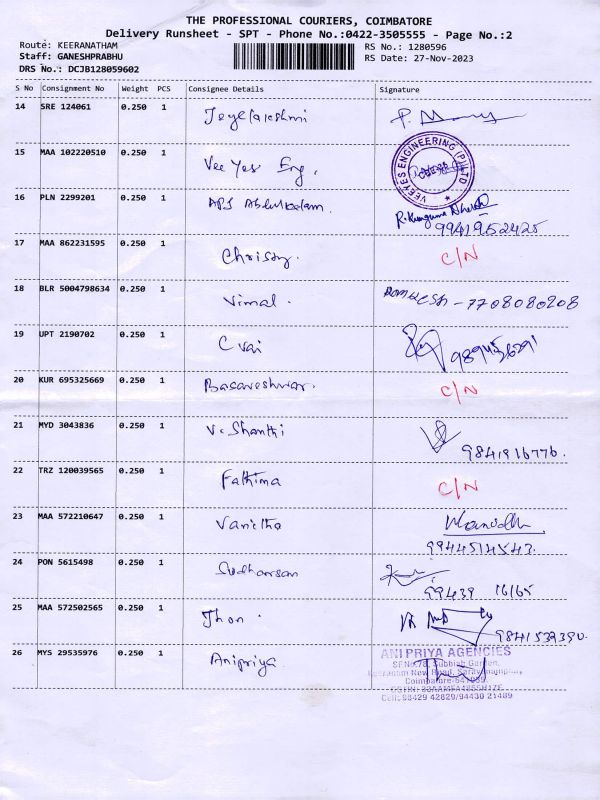 THE PROFESSIONAL COURIERS, COIMBATORE
Delivery Runsheet - SPT - Phone No.:0422-3505555 - Page No.:2
Route: KEERANATHAM
Staff: GANESHPRABHU
DRS No.: DCJB128059602
RS No.: 1280596
RS Date: 27-Nov-2023
S No Consignment No Weight PCS Consignee Details Signature
14 SRE 124061 0.250 1 Jeyelakshmi
15 MAA 102220510 0.250 1 Vee Yes Eng.
VEEYES ENGINEERING (P) LTD
16 PLN 2299201 0.250 1 APJ Abdulkalam.
9941952425
17 MAA 862231595 0.250 1 Christy. C/N
18 BLR 5004798634 0.250 1 Vimal. - 7708080208
19 UPT 2190702 0.250 1
20 KUR 695325669 0.250 1 Basaveshwar. C/N
21 MYD 3043836 0.250 1 V. Shanthi 9841916776.
22 TRZ 120039565 0.250 1 Fathima C/N
23 MAA 572210647 0.250 1 Vanitha
9944514543.
24 PON 5615498 0.250 1 Sudharsan
99439 16165
25 MAA 572502565 0.250 1 Jhon.
9841539390.
26 MYS 29535976 0.250 1 Anipriya
ANI PRIYA AGENCIES
SF No.78, Subbiah Garden,
Keeranatam New Road, Saravanampatti,
Coimbatore-641035.
Cell: 98429 42829/94430 21489